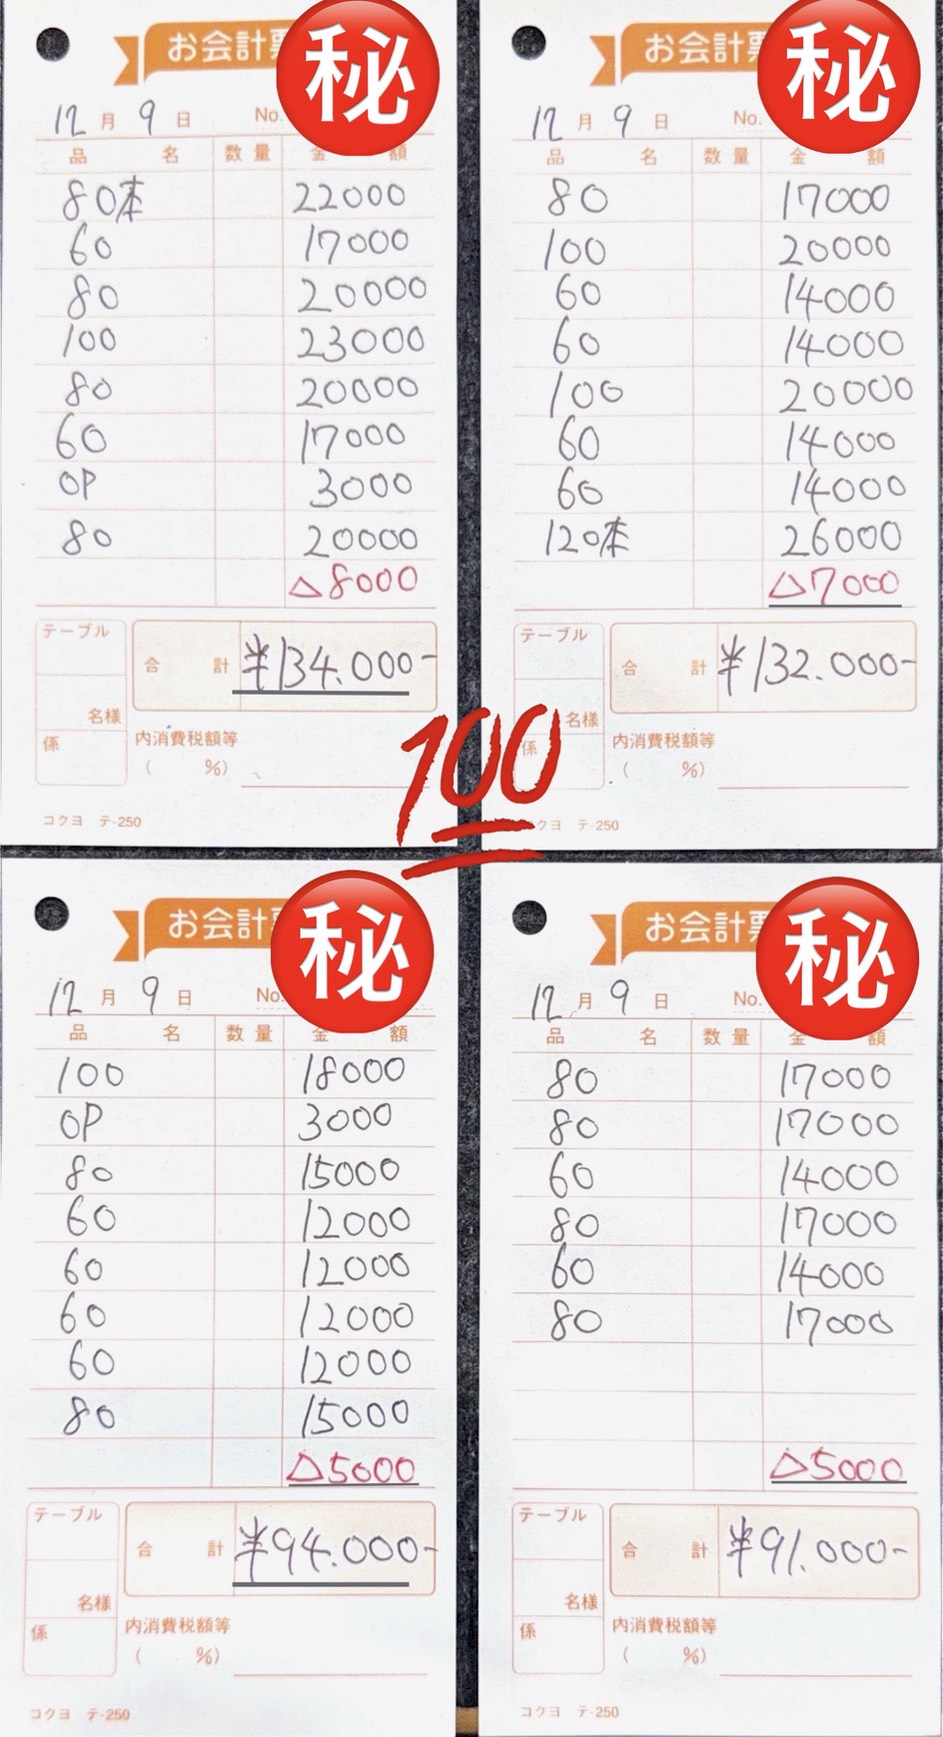 お会計票
㊙
12月 9日 No.
品名 数量 金額
80本 22000
60 17000
80 20000
100 23000
80 20000
60 17000
OP 3000
80 20000
△8000
テーブル
名様
係
合計 ¥134.000-
内消費税額等
( %)
コクヨ テ-250
お会計票
㊙
12月 9日 No.
品名 数量 金額
80 17000
100 20000
60 14000
60 14000
100 20000
60 14000
60 14000
120本 26000
△7000
テーブル
名様
係
合計 ¥132.000-
内消費税額等
( %)
コクヨ テ-250
100
お会計
㊙
12月 9日 No.
品名 数量 金額
100 18000
OP 3000
80 15000
60 12000
60 12000
60 12000
60 12000
80 15000
△5000
テーブル
名様
係
合計 ¥94.000-
内消費税額等
( %)
コクヨ テ-250
お会計票
㊙
12月 9日 No.
品名 数量 金額
80 17000
80 17000
60 14000
80 17000
60 14000
80 17000
△5000
テーブル
名様
係
合計 ¥91.000-
内消費税額等
( %)
コクヨ テ-250